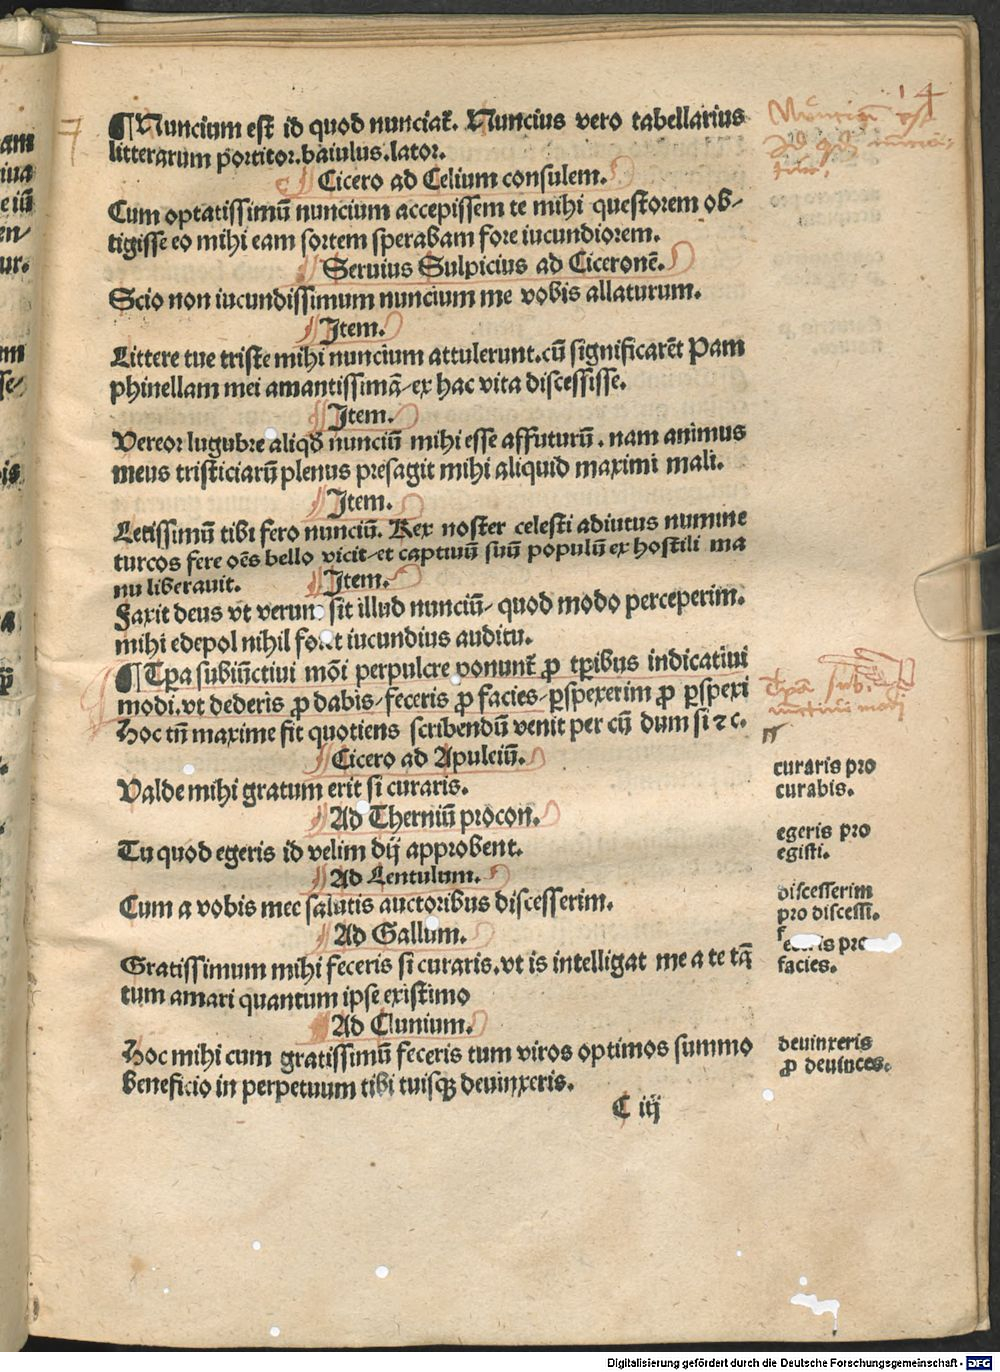 14
¶ Nuncium est id quod nunciat̄. Nuncius vero tabellarius
litterarum portitor.baiulus.lator.
Cicero ad Celium consulem.
Cum optatissimū nuncium accepissem te mihi questorem ob⸗
tigisse eo mihi eam sortem sperabam fore iucundiorem.
Seruius Sulpicius ad Ciceronē.
Scio non iucundissimum nuncium me vobis allaturum.
Item.
Littere tue triste mihi nuncium attulerunt.cū significarēt Pam
phinellam mei amantissimā ex hac vita discessisse.
Item.
Vereor lugubre aliqđ nunciū mihi esse affuturū. nam animus
meus tristiciarū plenus presagit mihi aliquid maximi mali.
Item.
Letissimū tibi fero nunciū. Rex noster celesti adiutus numine
turcos fere oēs bello vicit et captiuū suū populū ex hostili ma
nu liberauit. Item.
Faxit deus vt verum sit illud nunciū quod modo perceperim.
mihi edepol nihil foret iucundius auditu.
¶ Tp̄a subiūctiui mōi perpulcre ponunt̄ ꝓ tp̄ibus indicatiui
modi.vt dederis ꝓ dabis feceris ꝓ facies ꝑspexerim ꝓ ꝑspexi
Hoc tn̄ maxime fit quotiens scribendū venit per cū dum si ⁊ c.
Cicero ad Apuleiū.
Valde mihi gratum erit si curaris.
Ad Therniū procon.
Tu quod egeris id velim dij approbent.
Ad Lentulum.
Cum a vobis mee salutis auctoribus discesserim.
Ad Gallum.
Gratissimum mihi feceris si curaris.vt is intelligat me a te tā
tum amari quantum ipse existimo
Ad Clunium.
Hoc mihi cum gratissimū feceris tum viros optimos summo
beneficio in perpetuum tibi tuisqꝫ deuinxeris.
C iij
Nunciū est
id qđ nuncia⸗
tur.
Tp̄a sub⸗
iunctiui modi
curaris pro
curabis.
egeris pro
egisti.
discesserim
pro discessi.
pro
facies.
deuinxeris
ꝓ deuinces.
Digitalisierung gefördert durch die Deutsche Forschungsgemeinschaft - DFG